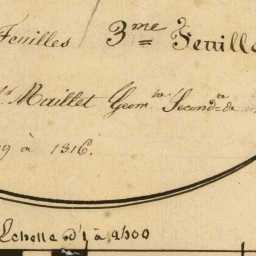 Feuilles 3.me Feuille
Maillet Geom.tre Second.re de
9 à 1316.
Echelle d'1 à 2500